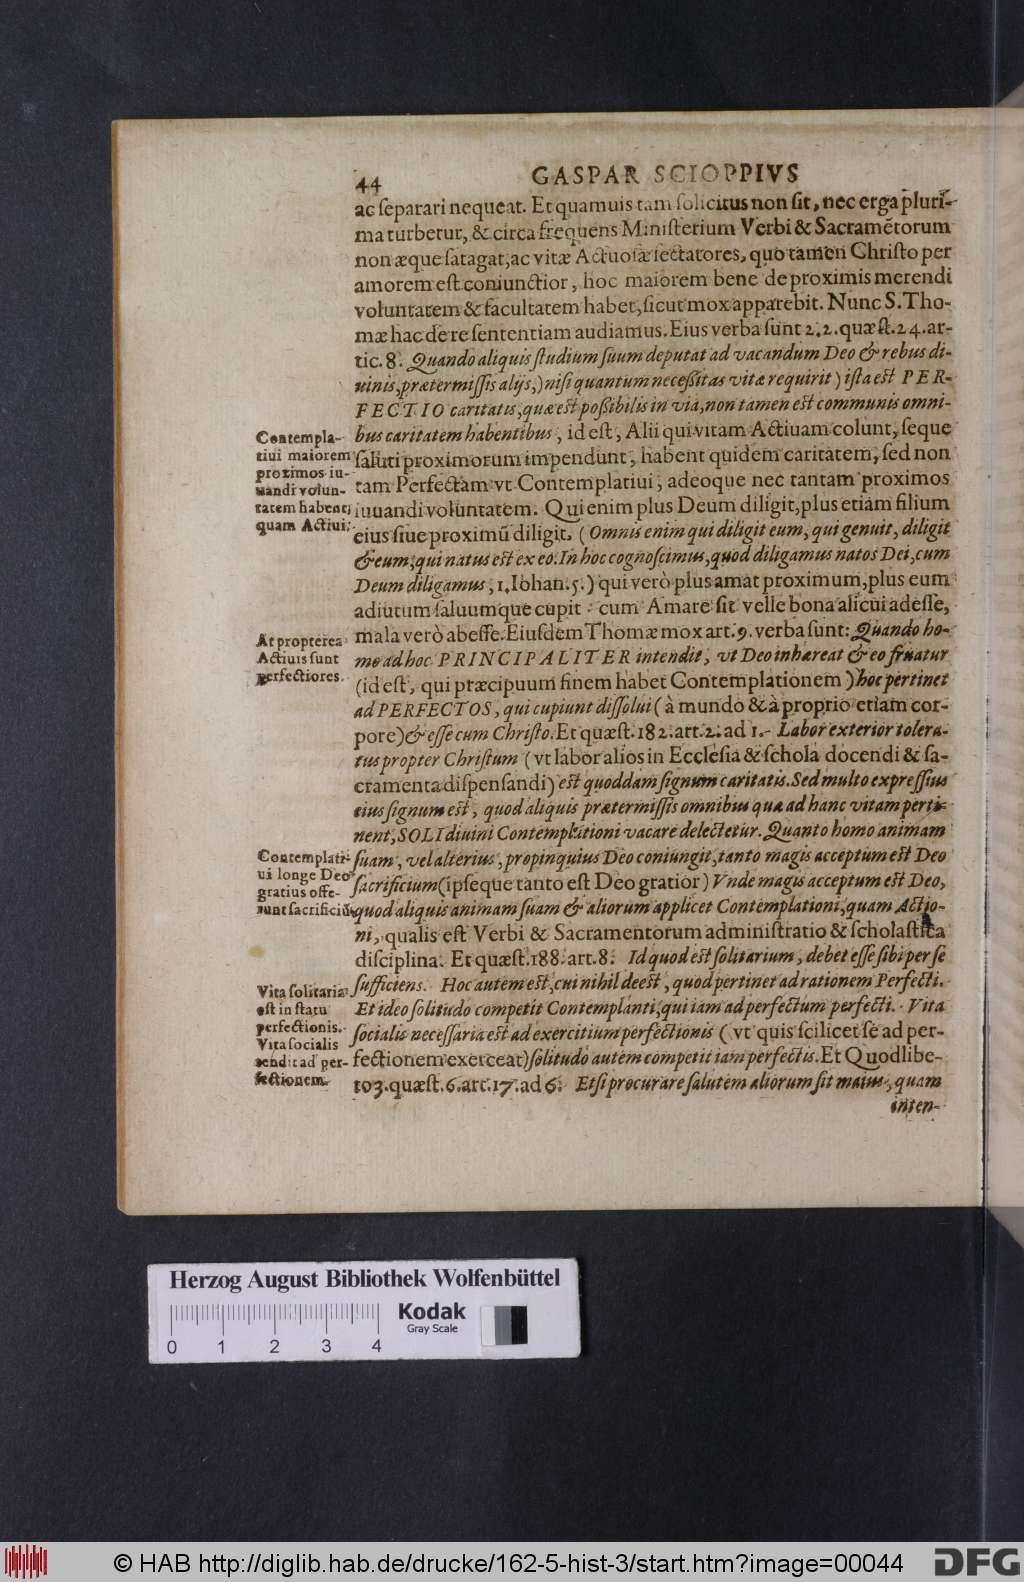 44 GASPAR SCIOPPIVS
ac separari nequeat. Et quamuis tam solicitus non sit, nec erga pluri-
ma turbetur, & circa frequens Ministerium Verbi & Sacramētorum
non æque satagat, ac vitæ Actuosæ sectatores, quo tamen Christo per
amorem est coniunctior, hoc maiorem bene de proximis merendi
voluntatem & facultatem habet, sicut mox apparebit. Nunc S. Tho-
mæ hac de re sententiam audiamus. Eius verba sunt 2. 2. quæst. 24. ar-
tic. 8. Quando aliquis studium suum deputat ad vacandum Deo & rebus di-
uinis, prætermissis alijs,) nisi quantum necessitas vitæ requirit) ista est PER-
FECTIO caritatis, quæ est possibilis in via, non tamen est communis omni-
bus caritatem habentibus, id est, Alii qui vitam Actiuam colunt, seque
saluti proximorum impendunt, habent quidem caritatem, sed non
tam Perfectam vt Contemplatiui, adeoque nec tantam proximos
iuuandi voluntatem. Qui enim plus Deum diligit, plus etiam filium
eius siue proximū diligit. (Omnis enim qui diligit eum, qui genuit, diligit
& eum, qui natus est ex eo. In hoc cognoscimus, quod diligamus natos Dei, cum
Deum diligamus, 1. Iohan. 5.) qui verò plus amat proximum, plus eum
adiutum saluumque cupit: cum Amare sit velle bona alicui adesse,
mala verò abesse. Eiusdem Thomæ mox art. 9. verba sunt: Quando ho-
mo ad hoc PRINCIPALITER intendit, vt Deo inhæreat & eo fruatur
(id est, qui præcipuum finem habet Contemplationem) hoc pertinet
ad PERFECTOS, qui cupiunt dissolui (à mundo & à proprio etiam cor-
pore) & esse cum Christo. Et quæst. 182. art. 2. ad 1. Labor exterior tolera-
tus propter Christum (vt labor alios in Ecclesia & schola docendi & sa-
cramenta dispensandi) est quoddam signum caritatis. Sed multo expressius
eius signum est, quod aliquis prætermissis omnibus quæ ad hanc vitam perti-
nent, SOLI diuini Contemplationi vacare delectetur. Quanto homo animam
suam, vel alterius, propinquius Deo coniungit, tanto magis acceptum est Deo
sacrificium (ipseque tanto est Deo gratior) Vnde magis acceptum est Deo,
quod aliquis animam suam & aliorum applicet Contemplationi, quam Actio-
ni, qualis est Verbi & Sacramentorum administratio & scholastica
disciplina. Et quæst. 188. art. 8. Id quod est solitarium, debet esse sibi per se
sufficiens. Hoc autem est, cui nihil deest, quod pertinet ad rationem Perfecti.
Et ideo solitudo competit Contemplanti, qui iam ad perfectum perfecti. Vita
socialis necessaria est ad exercitium perfectionis (vt quis scilicet se ad per-
fectionem exerceat) solitudo autem competit iam perfectis. Et Quodlibe-
to 3. quæst. 6. art. 17. ad 6. Etsi procurare salutem aliorum sit maius, quam
inten-
Contempla-
tiui maiorem
proximos iu-
uandi volun-
tatem habent,
quam Actiui.
At propterea
Actiuis sunt
perfectiores.
Contemplati-
ui longe Deo
gratius offe-
runt sacrificiū.
Vita solitaria
est in statu
perfectionis.
Vita socialis
tendit ad per-
fectionem.
Herzog August Bibliothek Wolfenbüttel
Kodak
Gray Scale
0 1 2 3 4
© HAB http://diglib.hab.de/drucke/162-5-hist-3/start.htm?image=00044
DFG